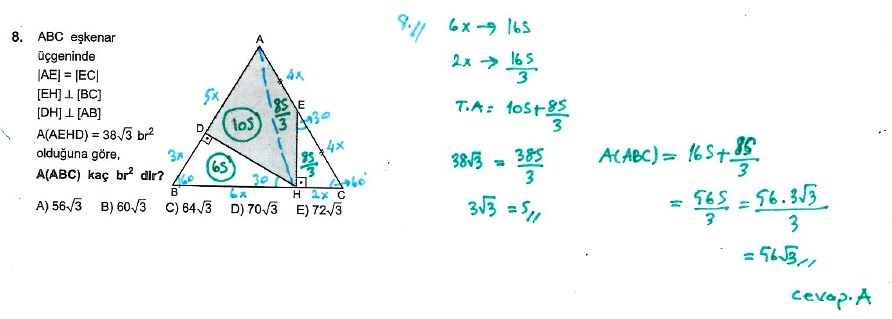 8. ABC eşkenar
üçgeninde
|AE| = |EC|
[EH] ⊥ [BC]
[DH] ⊥ [AB]
A(AEHD) = 38√3 br²
olduğuna göre,
A(ABC) kaç br² dir?
A) 56√3 B) 60√3 C) 64√3 D) 70√3 E) 72√3
A
4x
5x
E
85/3
30
10S
D
4x
3x
6S
8S/3
60
30
60
B
6x
H
2x
C
8.//
6x → 16S
2x → 16S/3
T.A = 10S + 8S/3
38√3 = 38S/3
3√3 = S//
A(ABC) = 16S + 16S/3
= 56S/3 = 56.3√3/3
= 56√3//
cevap.A